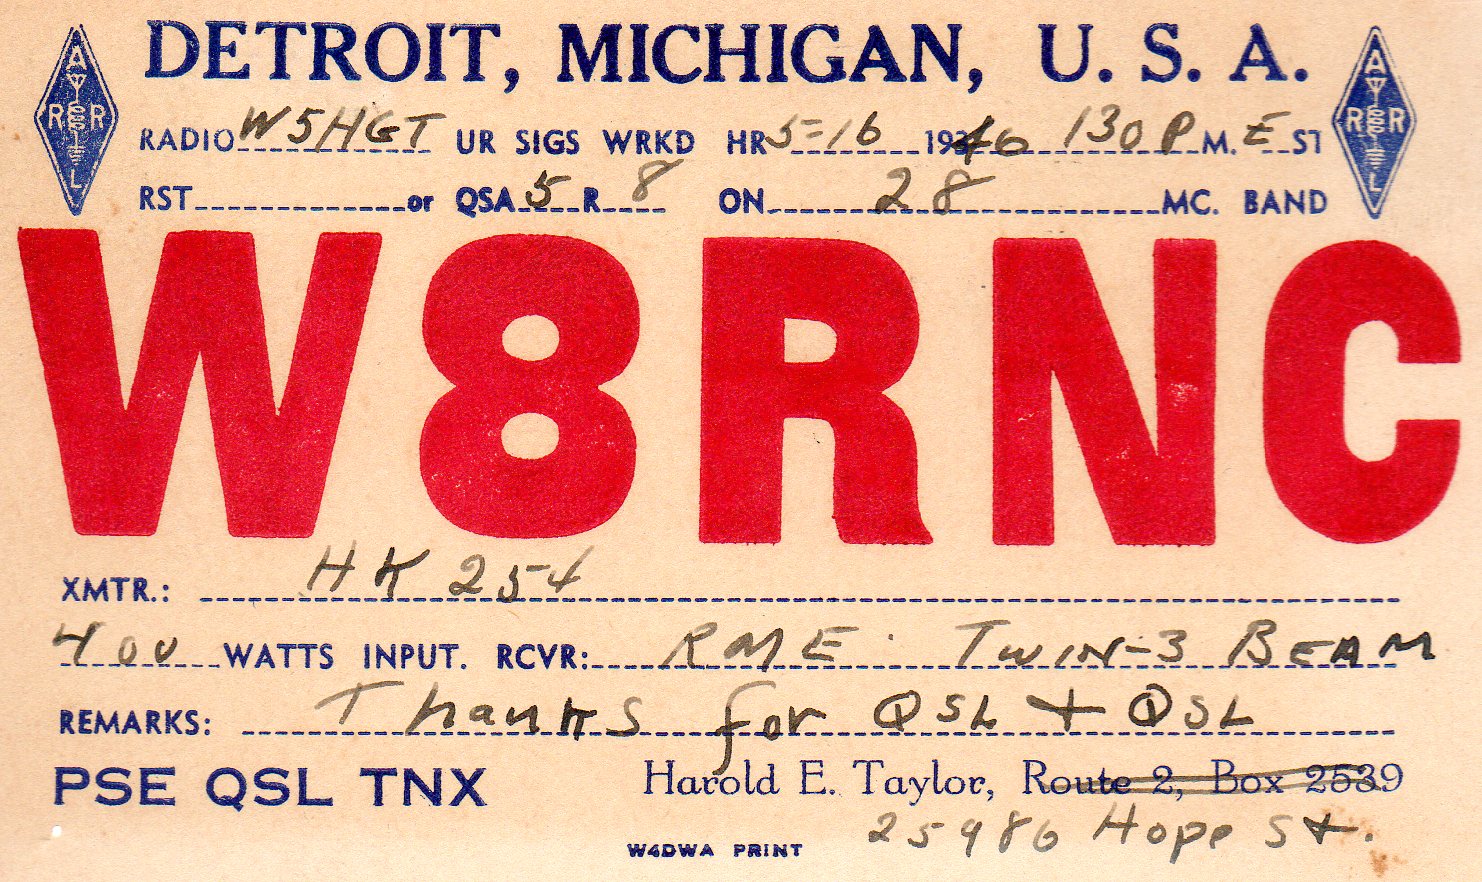 DETROIT, MICHIGAN, U. S. A.
A R R L
A R R L
RADIO W5HGT UR SIGS WRKD HR 5-16 1946 130 P M. E ST
RST or QSA 5 R 8 ON 28 MC. BAND
W8RNC
XMTR.: HK 254
400 WATTS INPUT. RCVR: RME Twin-3 BEAM
REMARKS: Thanks for QSL + QSL
PSE QSL TNX Harold E. Taylor, Route 2, Box 2539
25986 Hope St.
W4DWA PRINT